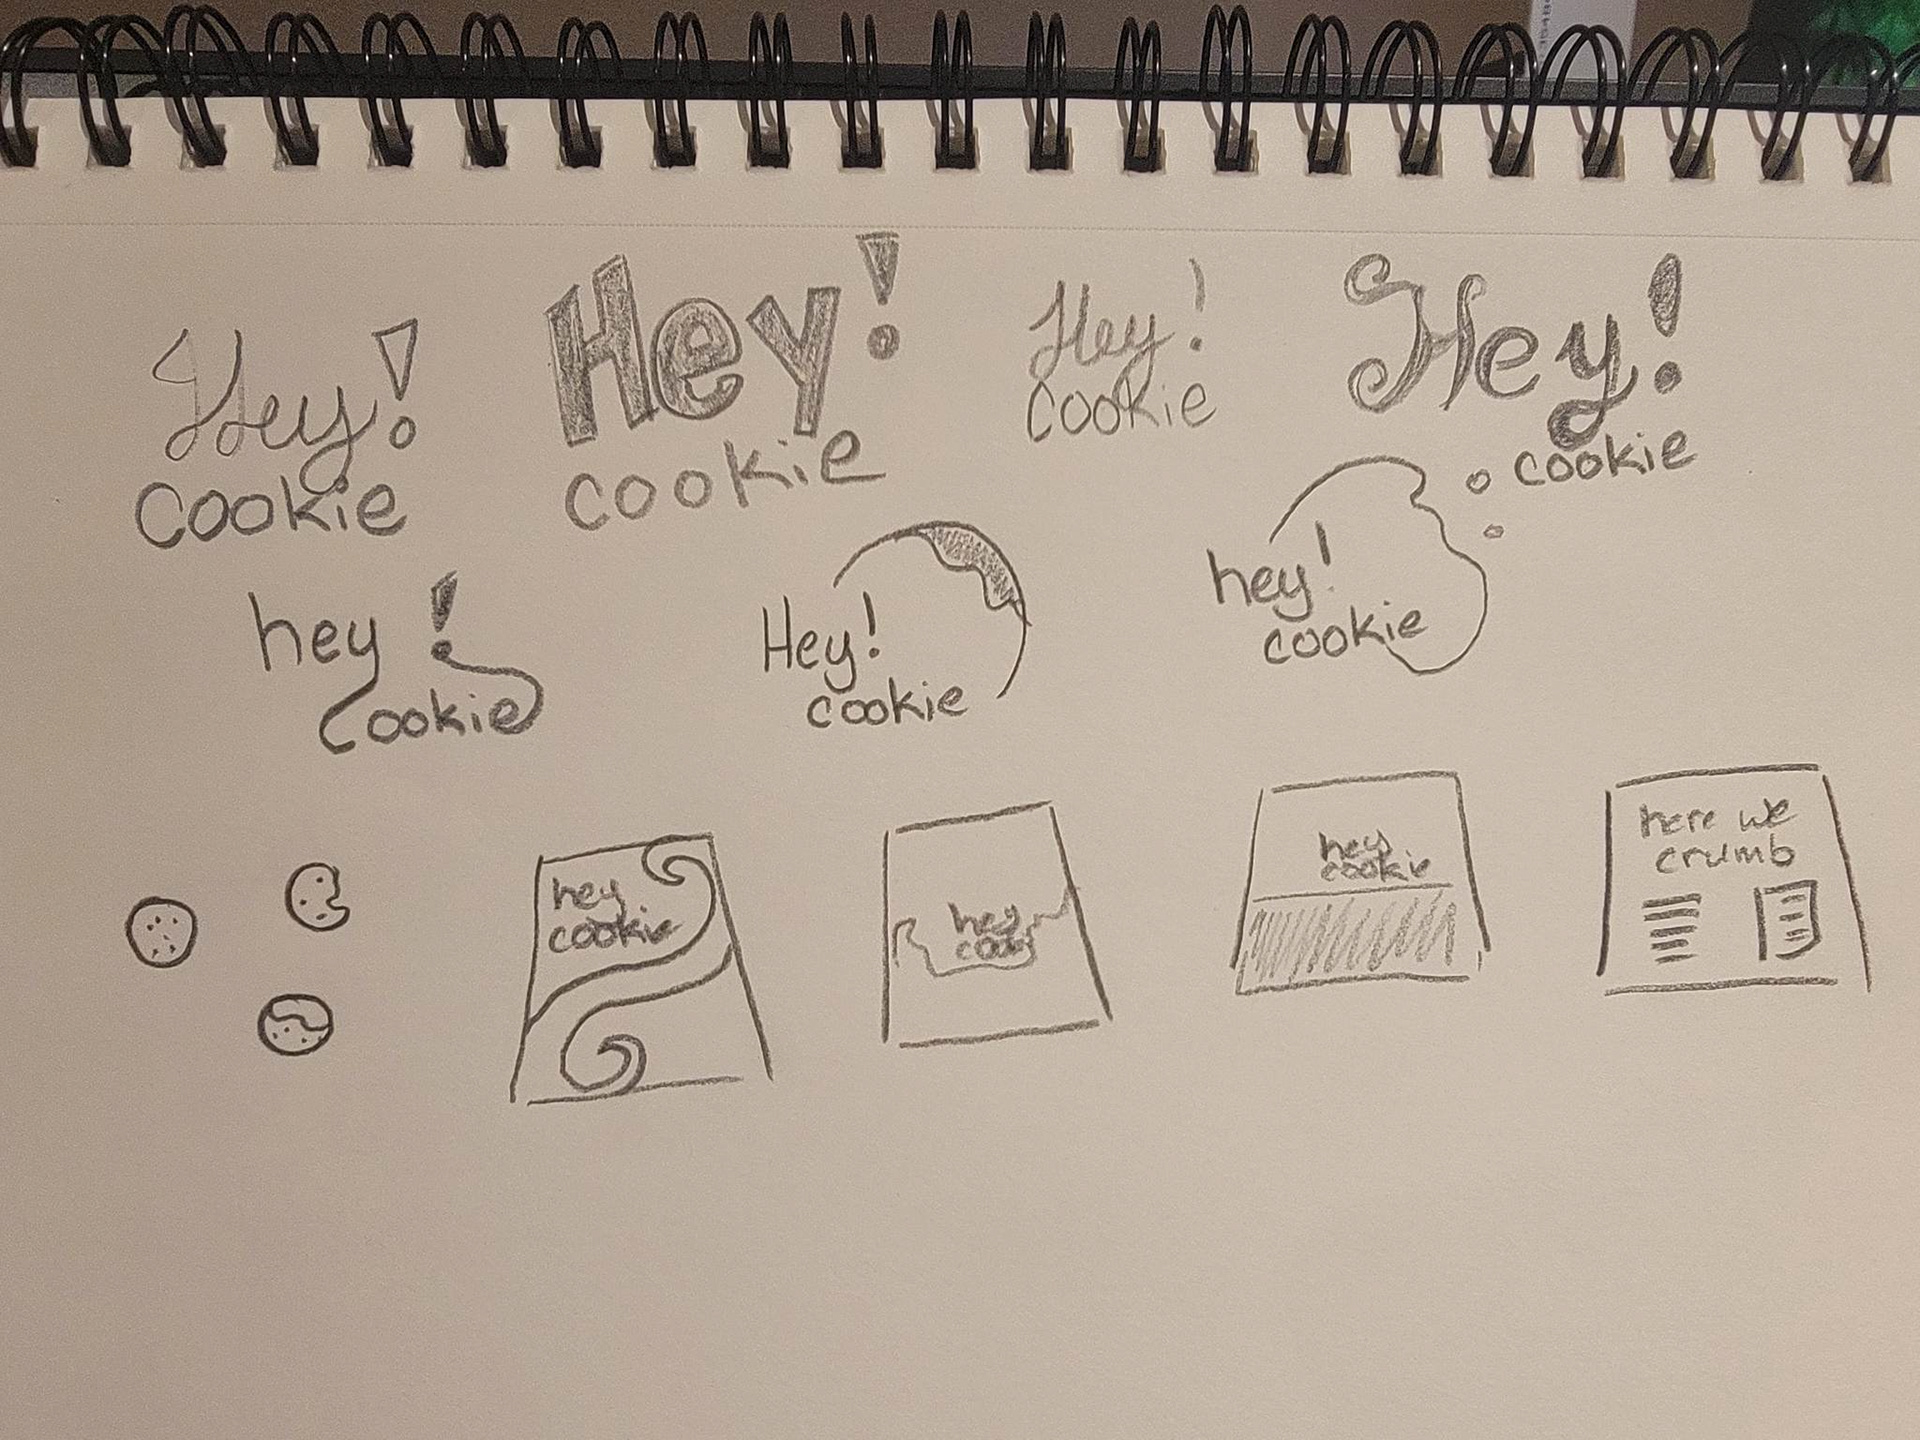 Hey!
cookie
Hey!
cookie
Hey!
cookie
Hey!
cookie
hey!
cookie
Hey!
cookie
hey!
cookie
hey
cookie
hey
hey
cookie
here we
crumb